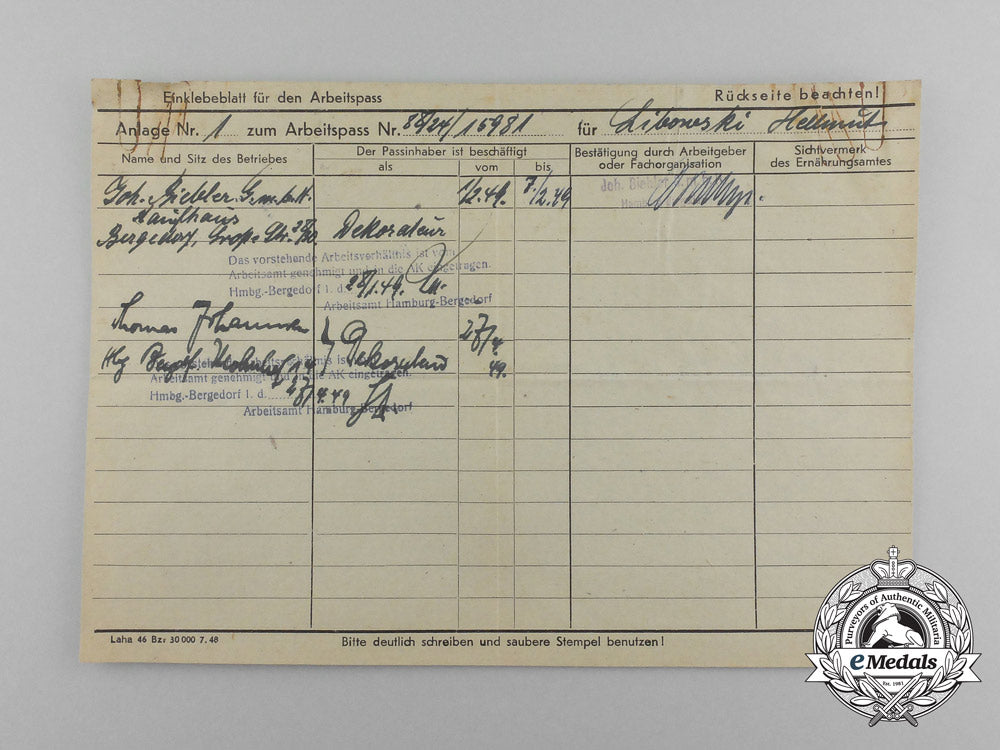 Einklebeblatt für den Arbeitspass Rückseite beachten!
Anlage Nr. 1 zum Arbeitspass Nr. 38/24/15981 für Libowski Hellmut
Name und Sitz des Betriebes
Der Passinhaber ist beschäftigt
als vom bis
Bestätigung durch Arbeitgeber
oder Fachorganisation
Sichtvermerk
des Ernährungsamtes
Joh. Biebler G.m.b.H. 1/2.49. 7./2.49
Joh. Biebler
Kaufhaus
Bergedorf, Große Str. Dekorateur
Das vorstehende Arbeitsverhältnis ist vom
Arbeitsamt genehmigt und in die AK eingetragen.
Hmbg.-Bergedorf i. d. 28/1.49.
Arbeitsamt Hamburg-Bergedorf
Thomas Johannsen 27/4.
Hbg Dekorateur 49.
Arbeitsamt genehmigt und in die AK eingetragen.
Hmbg.-Bergedorf i. d. 27/4.49
Arbeitsamt Hamburg-Bergedorf
Laha 46 Bz: 30 000 7. 48 Bitte deutlich schreiben und saubere Stempel benutzen!
Purveyors of Authentic Militaria
eMedals
Est. 1981